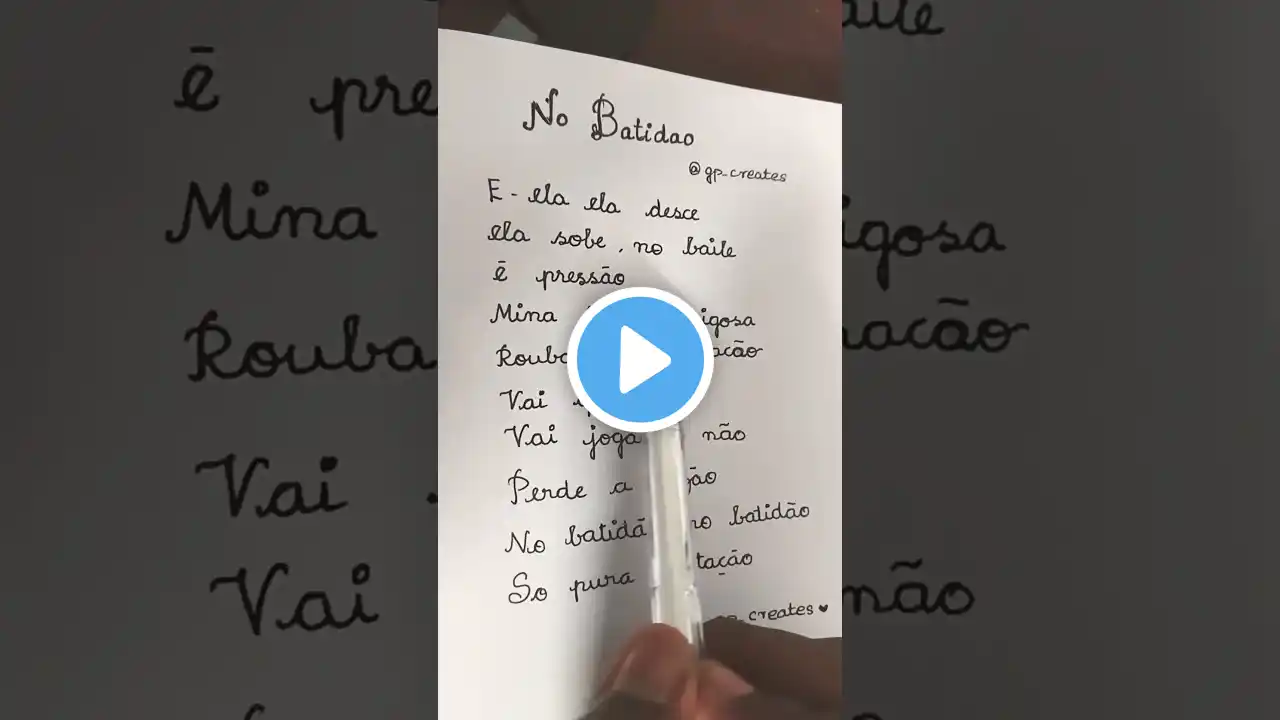 No Batidao
@gp-creates
E - ela ela desce
ela sobe, no baile
ē pressão
Mina igosa
Rouba acão
Vai
Vai joga não
Perde a
No batidã no batidão
So pura tação
creates ♥